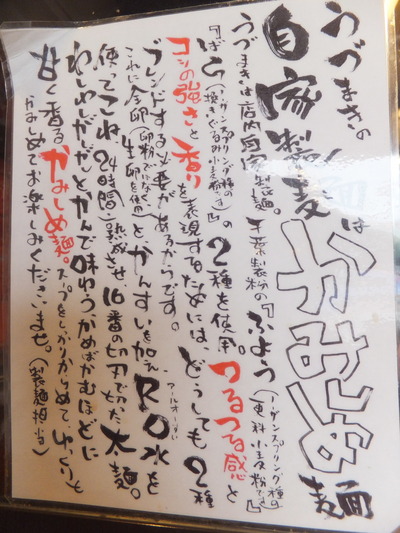 うづまきの
自家製麺は
かみしめ麺
うづまきは店内自家製麺。千葉製粉の『ふよう(ハーダンスプリング種の更科小麦粉です)』
『ばら(ハーダンスプリング種の挽きぐるみ小麦粉です)』の2種を使用。つるつる感と
コシの強さと香りを表現するためには、どうしても2種
ブレンドする必要があるからです。
これに全卵(卵粉ではなく、生卵を使用)とかんすいを加え、RO水(アールオーすい)を
使ってこね、24時間熟成させ、16番の切刃で切った太麺。
わしわしがしがしとかんで味わう、かめばかむほどに
甘く香るかみしめ麺。スープをしっかりからめて、ゆっくりと
かみしめてお楽しみくださいませ。(製麺担当)